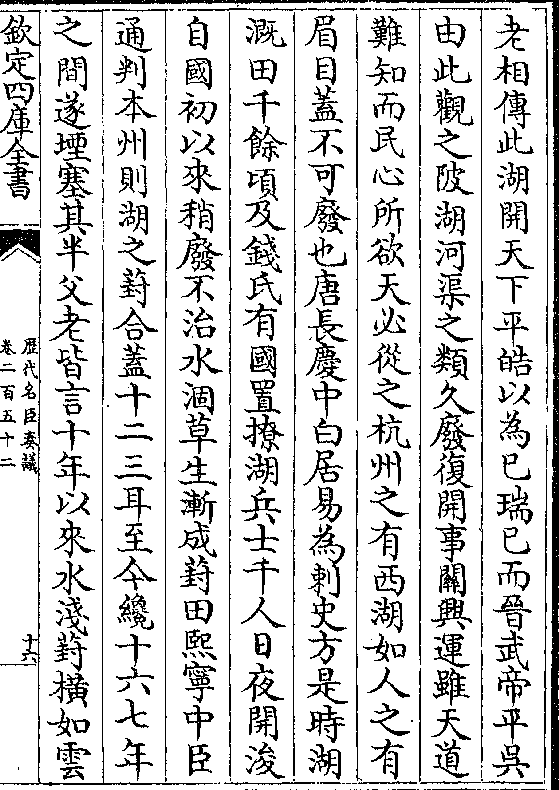 老相傳此湖開天下平皓以為已瑞已而晉武帝平吳
由此觀之陂湖河渠之類久廢復開事關興運雖天道
難知而民心所欲天必從之杭州之有西湖如人之有
眉目蓋不可廢也唐長慶中白居易為刺史方是時湖
溉田千餘頃及錢氏有國置撩湖兵士千人日夜開浚
自國初以來稍廢不治水涸草生漸成葑田熙寧中臣
通判本州則湖之葑合蓋十二三耳至今纔十六七年
之間遂堙塞其半父老皆言十年以來水淺葑橫如雲
欽定四庫全書
歷代名臣奏議
卷二百五十二
十六